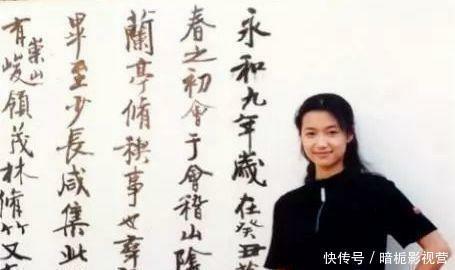 永和九年歲在癸丑
春之初會于會稽山陰
蘭亭脩稧事也羣
畢至少長咸集此
有崇山峻領茂林脩竹又
快传号/暗栀影视营